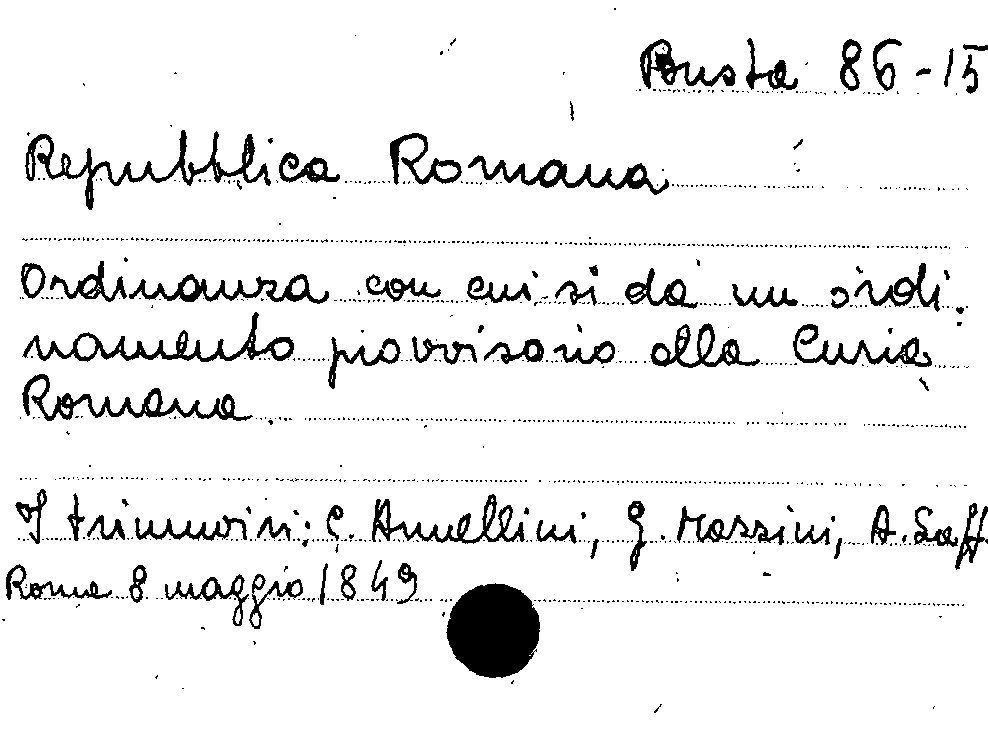 Busta 86-15
Repubblica Romana
Ordinanza con cui si dà un ordi.
namento provvisorio alla Curia
Romana.
I triumviri: C. Armellini, G. Mazzini, A. Saff.
Roma 8 maggio 1849